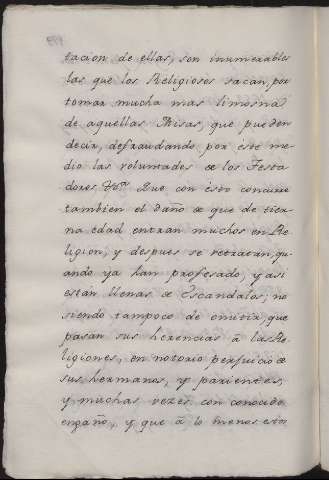 tacion de ellas, son inumerables
las que los Religiosos sacan, por
tomar mucha mas limosna
de aquellas Misas, que pueden
decir, defraudando por este me
dio las voluntades de los Testa
dores. Que con esto concurre
tambien el daño de que de tier
na edad entran muchos en Re
ligion, y despues se retratan, qu
ando ya han profesado, y asi
estan llenas de Escandalos; no
siendo tampoco de omitir, que
pasan sus herencias à las Re
ligiones, en notorio perjuicio de
sus hermanos, y parientes,
y muchas vezes con conocido
engaño, y que à lo menos estos